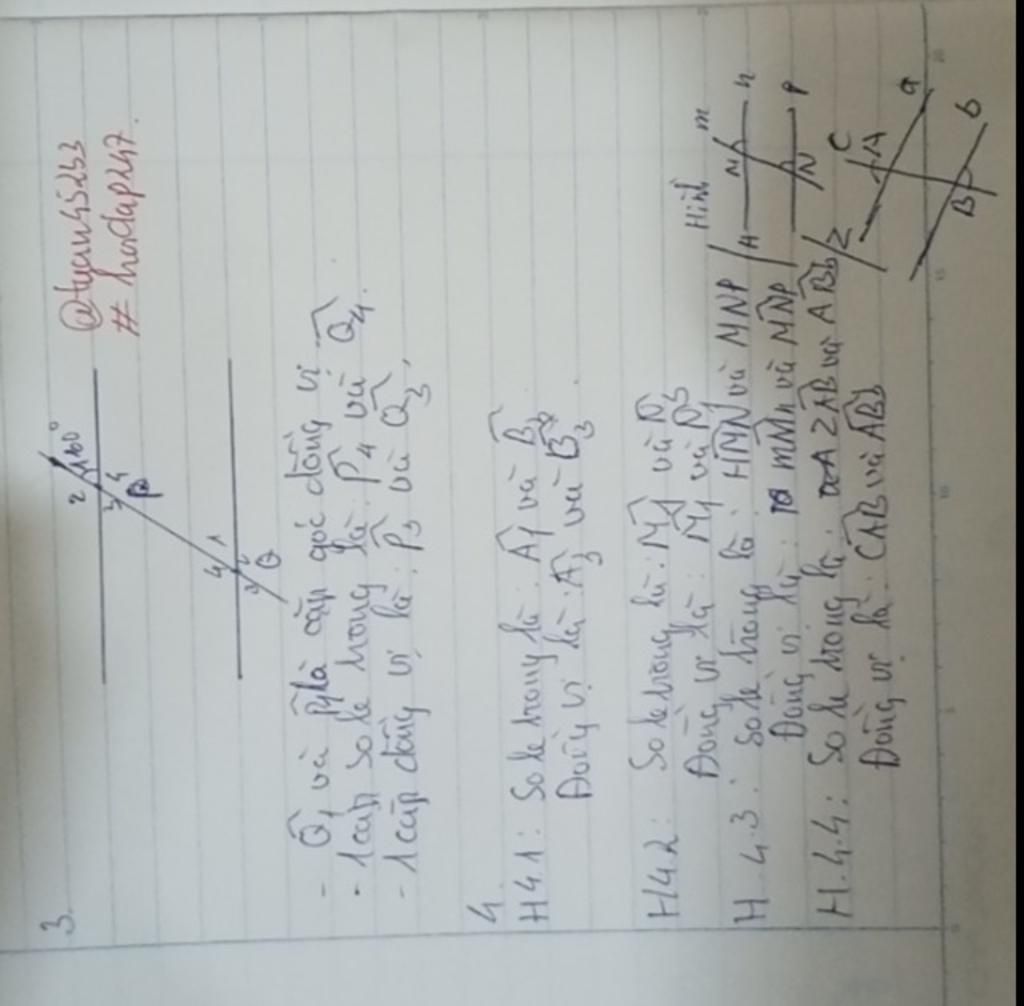 3.
@tuan45233
# hoidap247.
2 1 160°
3 4
P
4 1
3 2
Q
- Q̂1 và P̂1 là cặp góc đồng vị
- 1 cặp so le trong là: P̂4 và Q̂4.
- 1 cặp đồng vị là: P̂3 và Q̂3,
4.
H4.1: So le trong là: Â1 và B̂
Đồng vị là: Â3 và B̂3.
H4.2: So le trong là: M̂1 và N̂
Đồng vị là: M̂1 và N̂3
H.4.3: So le trong là: HMN và MNP
Đồng vị là: mMn và MNP
H.4.4: So le trong là: ZAB và ABb
Đồng vị là: CAB và ABb
Hình
m
H M n
N P
Z C A a
B b